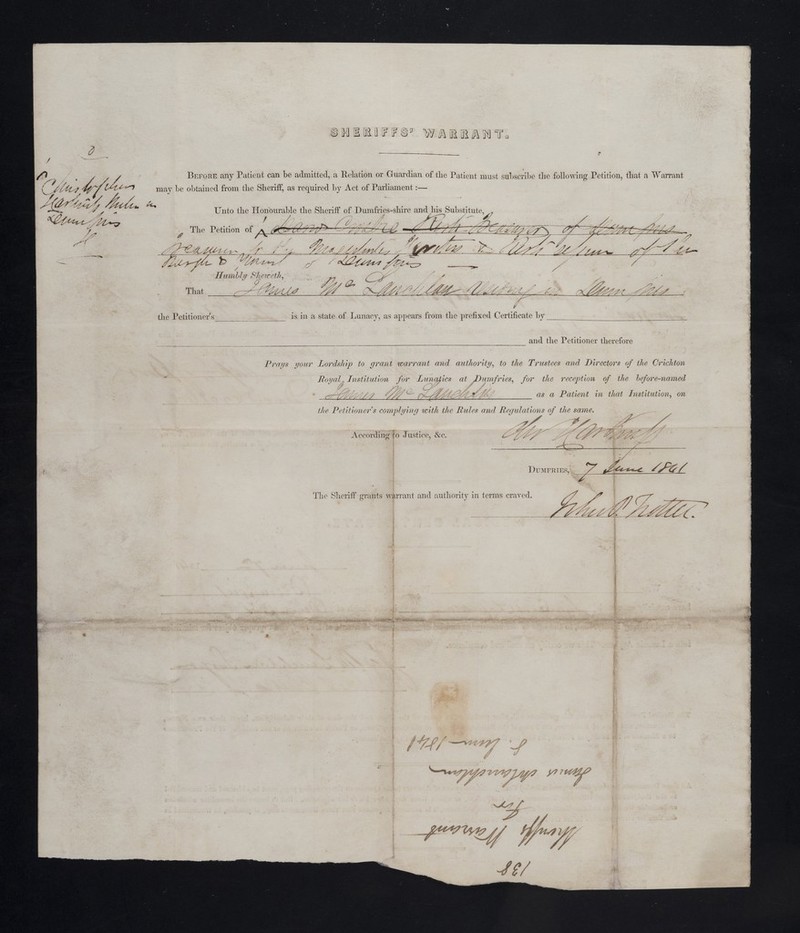 SHERIFFS' WARRANT.
BEFORE any Patient can be admitted, a Relation or Guardian of the Patient must subscribe the following Petition, that a Warrant
may be obtained from the Sheriff, as required by Act of Parliament :—
Christopher
Harkness Writer in
Dumfries
Unto the Honourable the Sheriff of Dumfries-shire and his Substitute,
The Petition of
of Dumfries
of the
Burgh & of Dumfries
Humbly Sheweth,
That James Mc Lauchlan residing in Dumfries
the Petitioner's is in a state of Lunacy, as appears from the prefixed Certificate by
and the Petitioner therefore
Prays your Lordship to grant warrant and authority, to the Trustees and Directors of the Crichton
Royal Institution for Lunatics at Dumfries, for the reception of the before-named
James Mc Lauchlan as a Patient in that Institution, on
the Petitioner's complying with the Rules and Regulations of the same.
According to Justice, &c.
Chr Harkness
DUMFRIES, 7 June 1841
The Sheriff grants warrant and authority in terms craved.
John Trotter
138
Sheriffs Warrant
for
James McLauchlan
8 June 1841